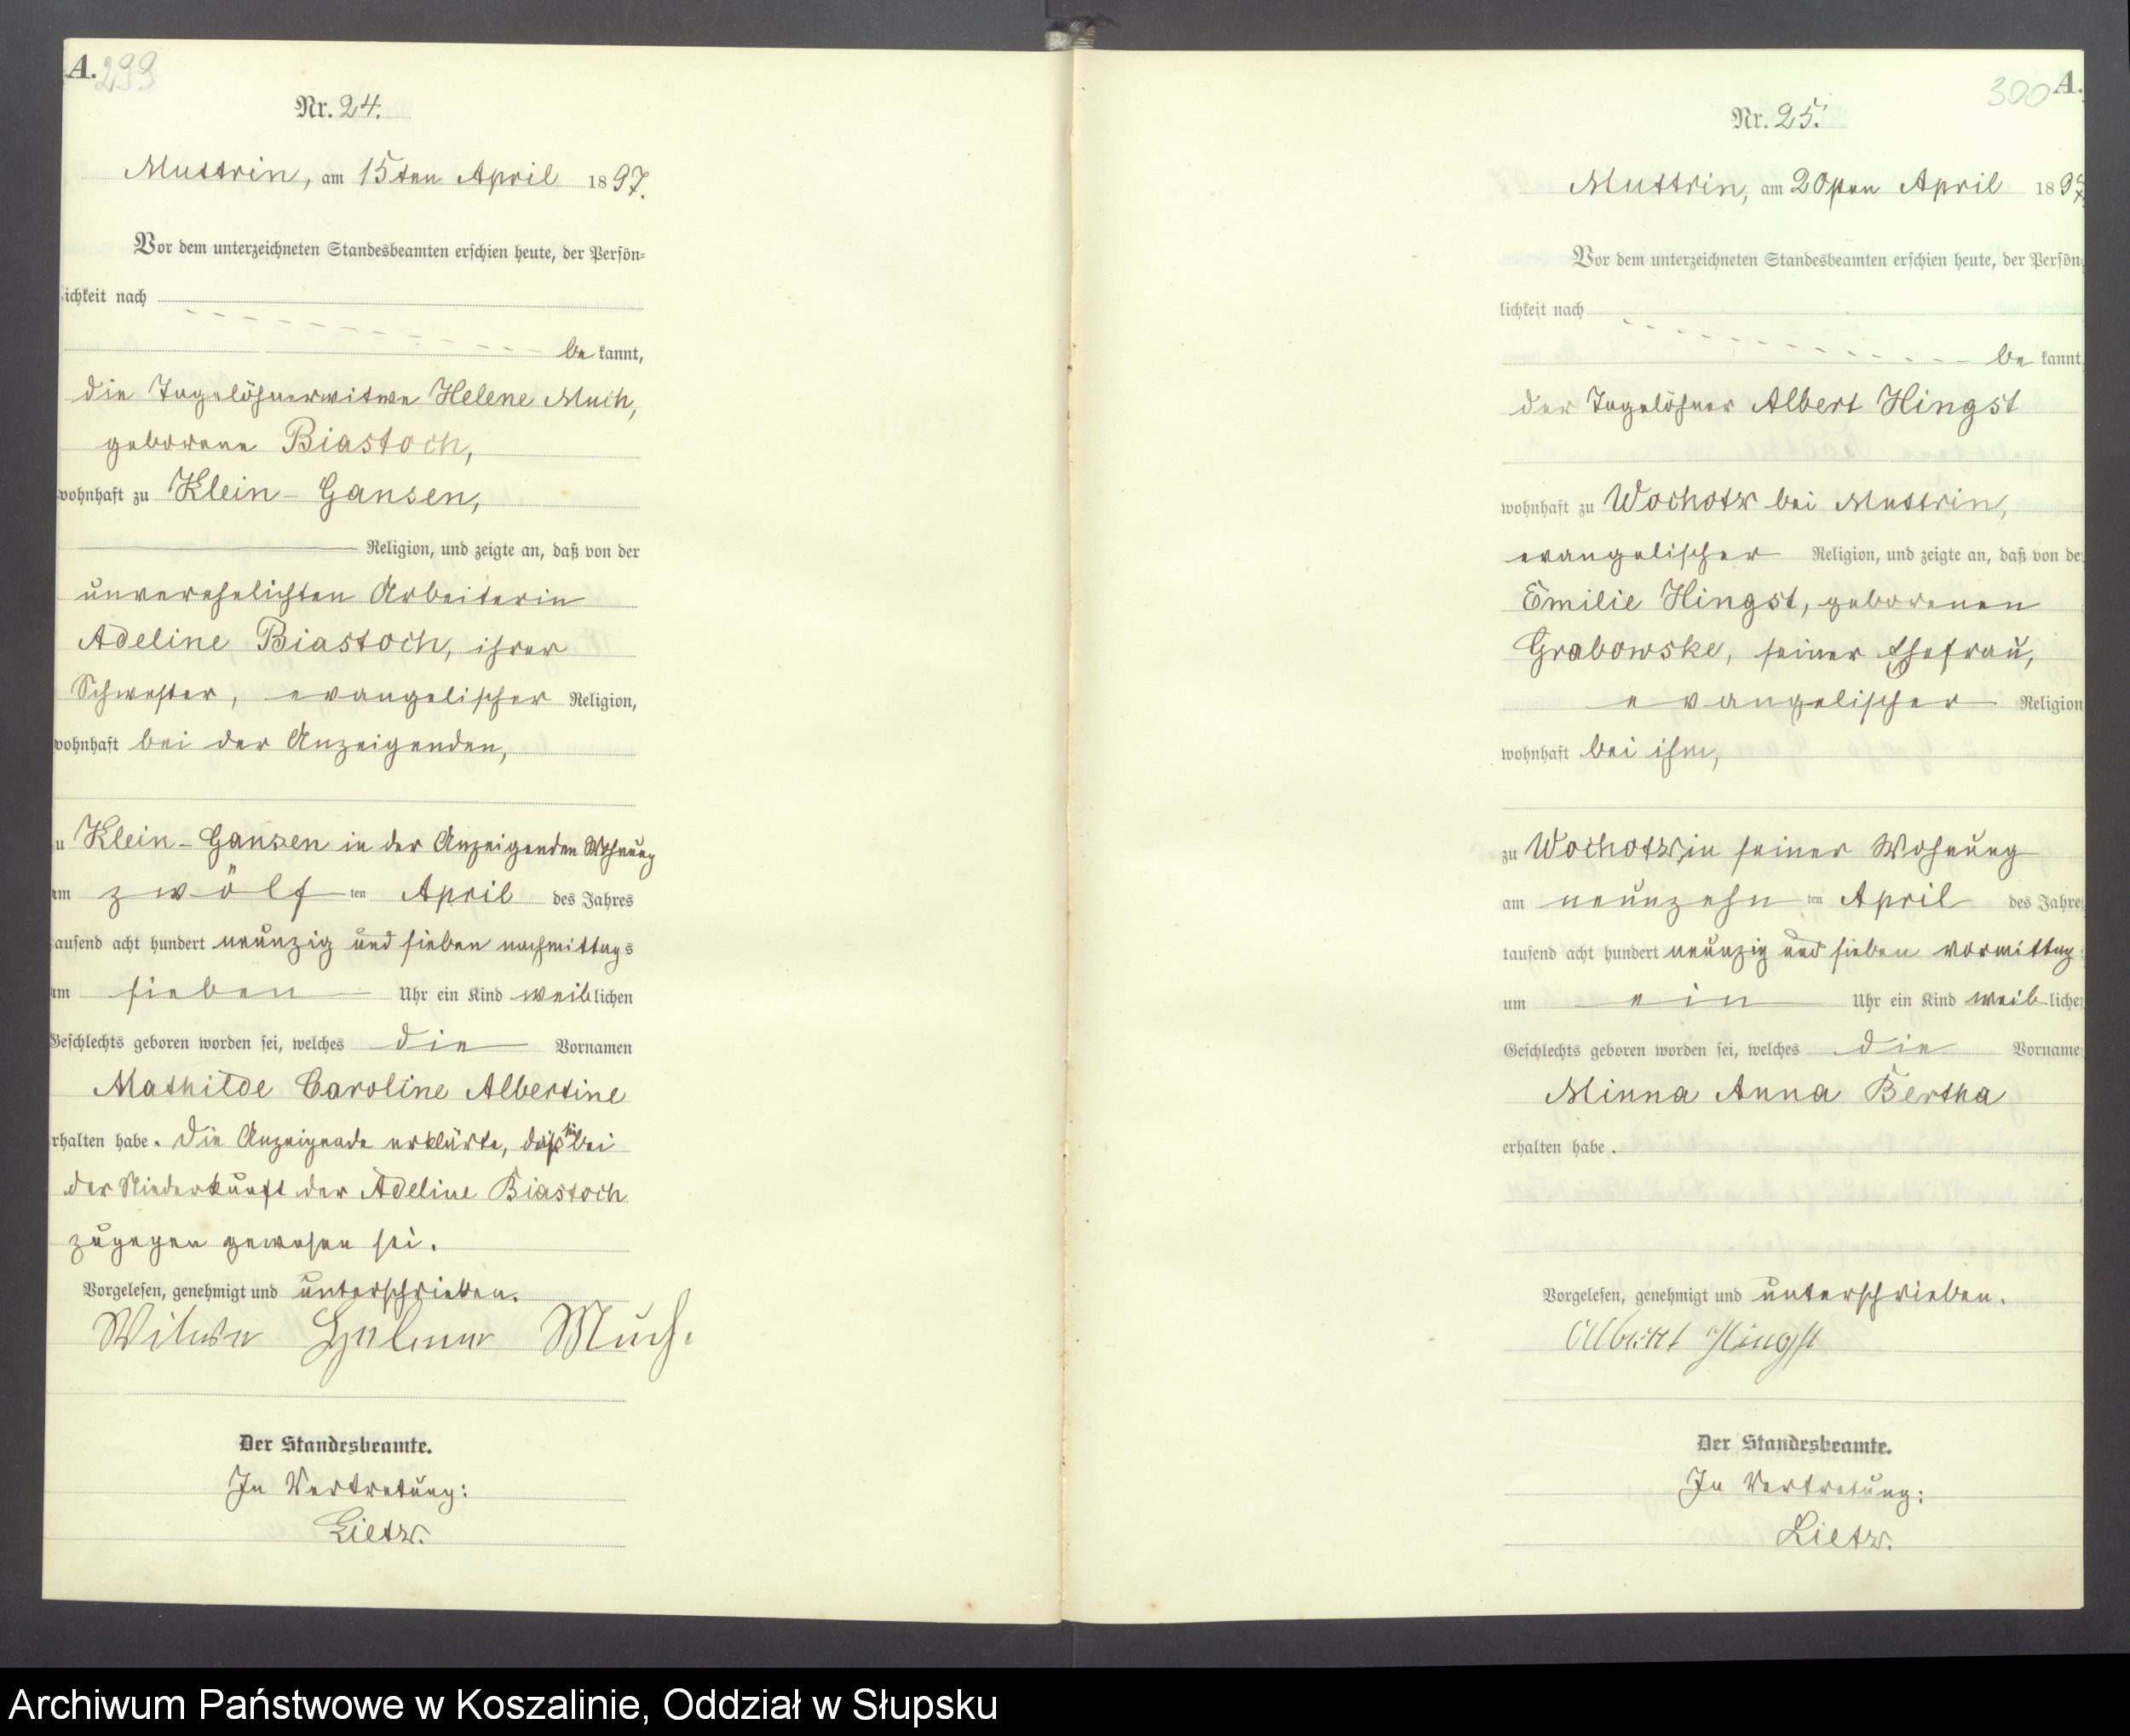 A. 299
Nr. 24.
Muttrin, am 15ten April 1897.
Vor dem unterzeichneten Standesbeamten erschien heute, der Persön=
lichkeit nach
be kannt,
die Tagelöhnerwitwe Helene Much,
geborene Biastoch,
wohnhaft zu Klein-Gansen,
Religion, und zeigte an, daß von der
unverehelichten Arbeiterin
Adeline Biastoch, ihrer
Schwester, evangelischer Religion,
wohnhaft bei der Anzeigenden,
zu Klein-Gansen in der Anzeigenden Wohnung
am zwölf ten April des Jahres
tausend acht hundert neunzig und sieben nachmittags
um sieben Uhr ein Kind weiblichen
Geschlechts geboren worden sei, welches die Vornamen
Mathilde Caroline Albertine
erhalten habe. Die Anzeigende erklärte, daß sie bei
der Niederkunft der Adeline Biastoch
zugegen gewesen sei.
Vorgelesen, genehmigt und unterschrieben.
Witwe Helene Much.
Der Standesbeamte.
In Vertretung:
Lietz.
300 A.
Nr. 25.
Muttrin, am 20sten April 1897.
Vor dem unterzeichneten Standesbeamten erschien heute, der Persön
lichkeit nach
be kannt,
der Tagelöhner Albert Hingst
wohnhaft zu Wochotz bei Muttrin,
evangelischer Religion, und zeigte an, daß von de
Emilie Hingst, geborenen
Grabowske, seiner Ehefrau,
evangelischer Religion
wohnhaft bei ihm,
zu Wochotz, in seiner Wohnung
am neunzehn ten April des Jahre
tausend acht hundert neunzig und sieben vormittag
um ein Uhr ein Kind weib liche
Geschlechts geboren worden sei, welches die Vorname
Minna Anna Bertha
erhalten habe.
Vorgelesen, genehmigt und unterschrieben.
Albert Hingst
Der Standesbeamte.
In Vertretung:
Lietz.
Archiwum Państwowe w Koszalinie, Oddział w Słupsku